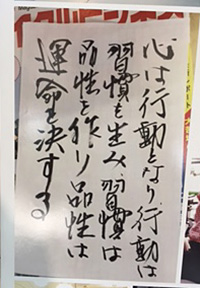 心は行動となり、行動は
習慣を生み、習慣は
品性を作り品性は
運命を決する